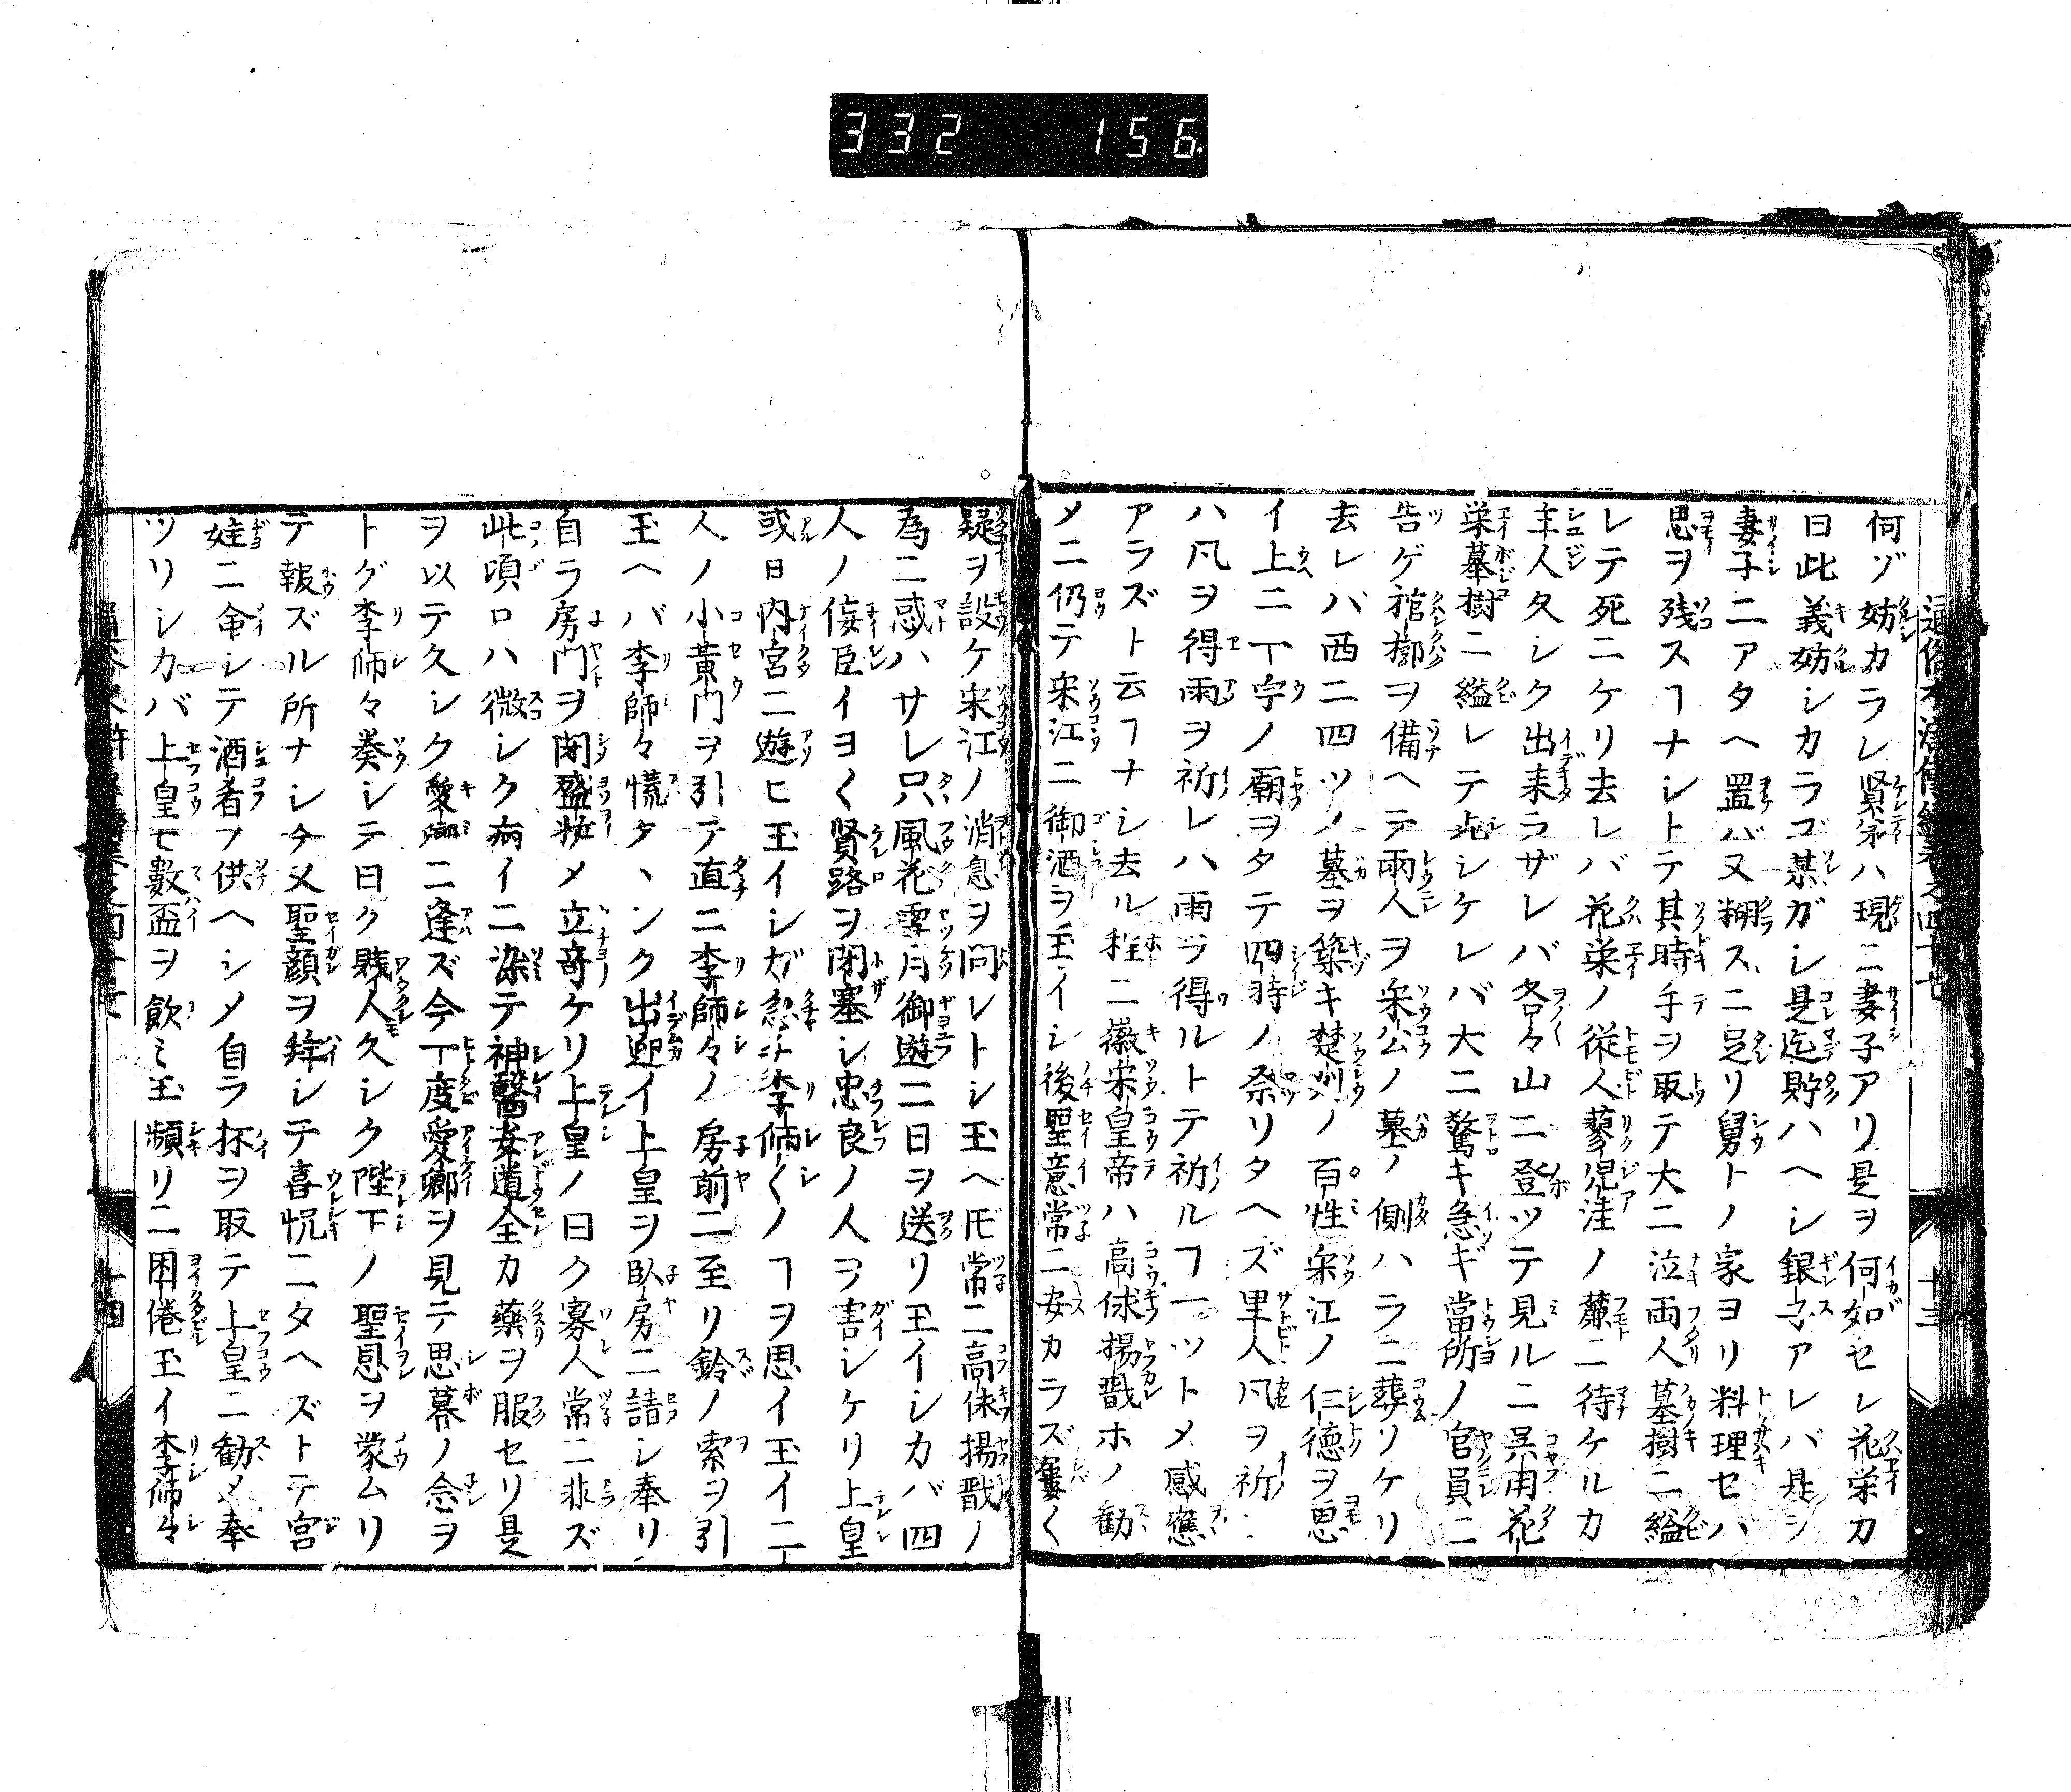 332 156
何ゾ妨カラン賢弟ハ現ニ妻子アリ是ヲ何如セン花栄カ
曰此義妨シカラズ某ガシ是迄貯ハヘシ銀子アレバ是ヲ
妻子ニアタヘ置バ又糊スニ足リ舅トノ家ヨリ料理セハ
思ヲ残スヿナシトテ其時手ヲ取テ大ニ泣両人墓樹ニ縊
レテ死ニケリ去レバ花栄ノ従人蓼児洼ノ麓ニ待ケルカ
主人久シク出来ラザレバ各々山ニ登ツテ見ルニ呉用花
栄墓樹ニ縊レテ死シケレバ大ニ驚キ急ギ當所ノ官員ニ
告ゲ棺槨ヲ備ヘテ兩人ヲ宋公ノ墓ノ側ハラニ葬リケリ
去レバ西ニ四ツノ墓ヲ築キ楚州ノ百性宋江ノ仁徳ヲ思
イ上ニ一宇ノ廟ヲタテ四時ノ祭リタヘズ里人凡ヲ祈
ハ凡ヲ得雨ヲ祈レハ雨ヲ得ルトテ祈ルヿ一ツトメ感應
アラズト云ヿナシ去ル程ニ徽宋皇帝ハ高俅揚戩ホノ勧
メニ仍テ宋江ニ御酒ヲ玉イシ後聖意常ニ安カラズ屢く
疑ヲ設ケ宋江ノ消息ヲ問レトシ玉ヘ𪜈常ニ高俅揚戩ノ
為ニ惑ハサレ只風花雪月御遊ニ日ヲ送リ玉イシカバ四
人ノ侫臣イヨく賢路ヲ閉塞シ忠良ノ人ヲ害シケリ上皇
或日内宮ニ遊ヒ玉イシガ忽チ李師くノヿヲ思イ玉イ二
人ノ小黄門ヲ引テ直ニ李師々ノ房前ニ至リ鈴ノ索ヲ引
玉ヘバ李師々慌タヽシク出迎イ上皇ヲ臥房ニ請シ奉リ
自ラ房門ヲ閉盛妝メ立竒ケリ上皇ノ曰ク寡人常ニ非ズ
此項ロハ微シク病イニ染テ神醫安道全カ藥ヲ服セリ是
ヲ以テ久シク愛卿ニ逢ズ今一度愛卿ヲ見テ思慕ノ念ヲ
トグ李師々奏シテ曰ク賎人久シク陛下ノ聖恩ヲ蒙ムリ
テ報ズル所ナシ今又聖顔ヲ拜シテ喜悦ニタヘズトテ宮
娃ニ命シテ酒肴ヲ供ヘシメ自ラ杯ヲ取テ上皇ニ勧メ奉
ツリシカバ上皇モ數盃ヲ飲ミ玉頻リニ困倦玉イ李師々
十四